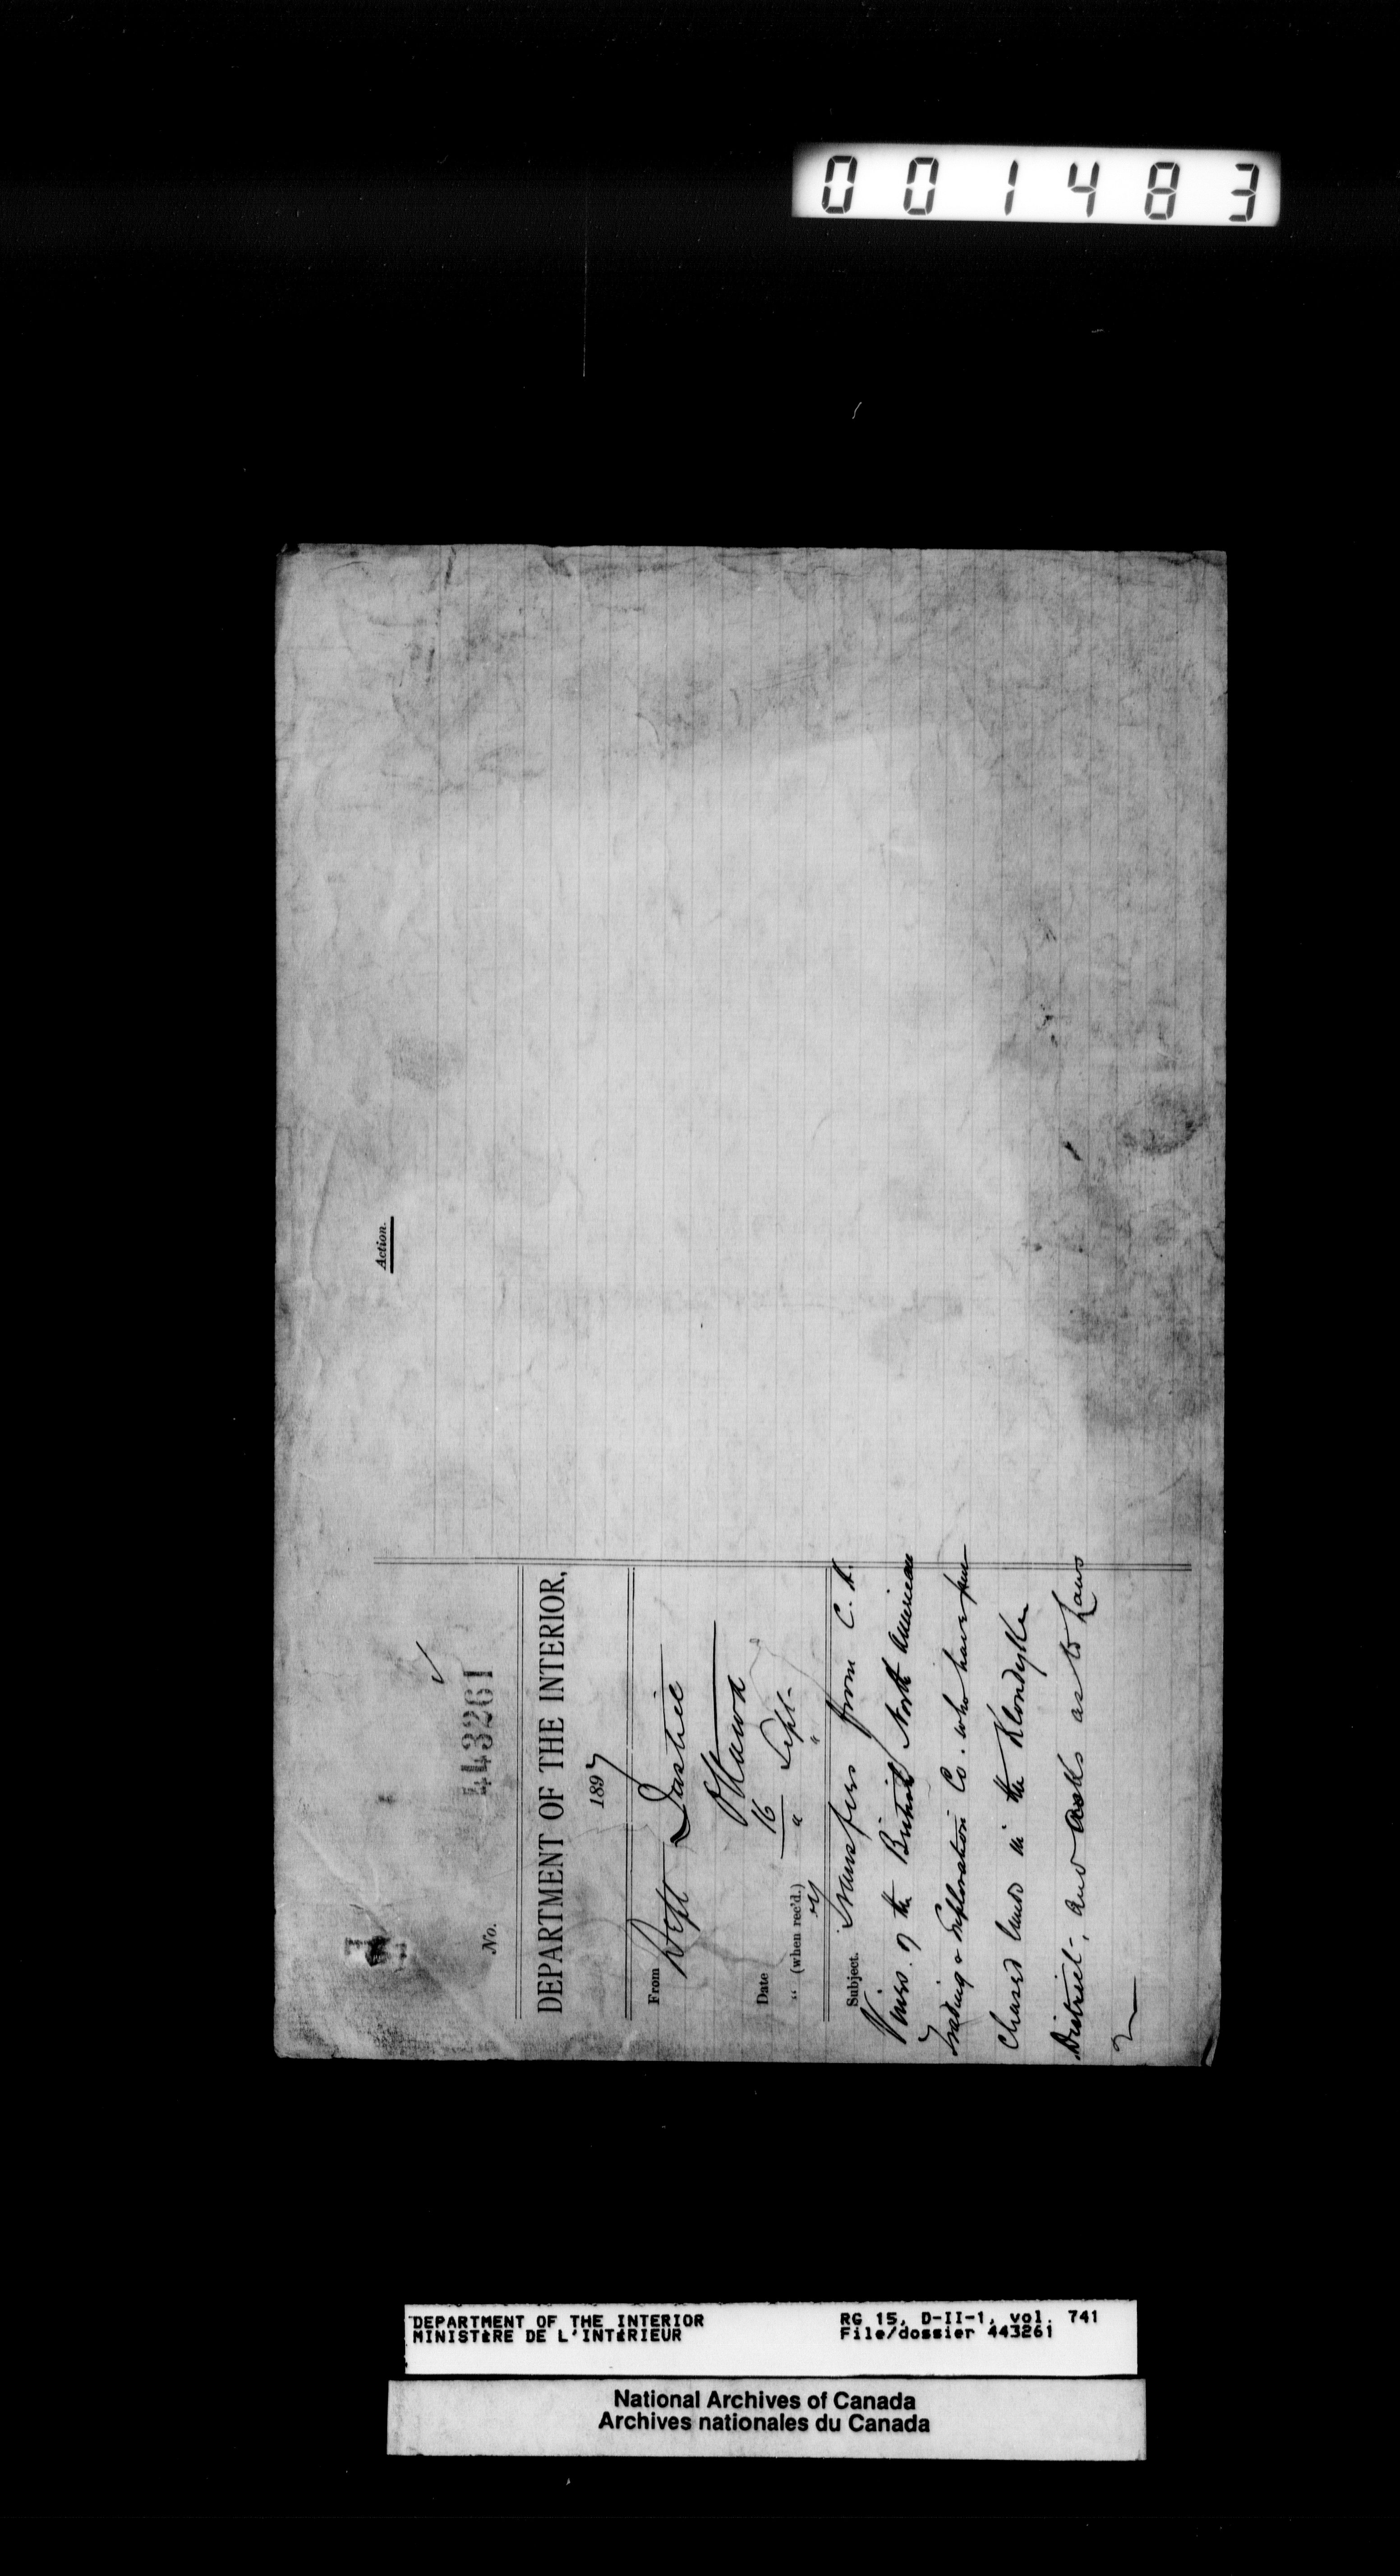 001483
Action.
No. 443261
DEPARTMENT OF THE INTERIOR,
1897
From Dept Justice
Ottawa
Date 16 Sept.
" (when rec'd.) " "
Subject. Transfers from C. H.
Vines. of the British North American
Trading & Exploration Co. who have pur
chased land in the Klondyke
District, and asks as to Laws
DEPARTMENT OF THE INTERIOR
MINISTÈRE DE L'INTÉRIEUR
RG 15, D-II-1, vol. 741
File/dossier 443261
National Archives of Canada
Archives nationales du Canada